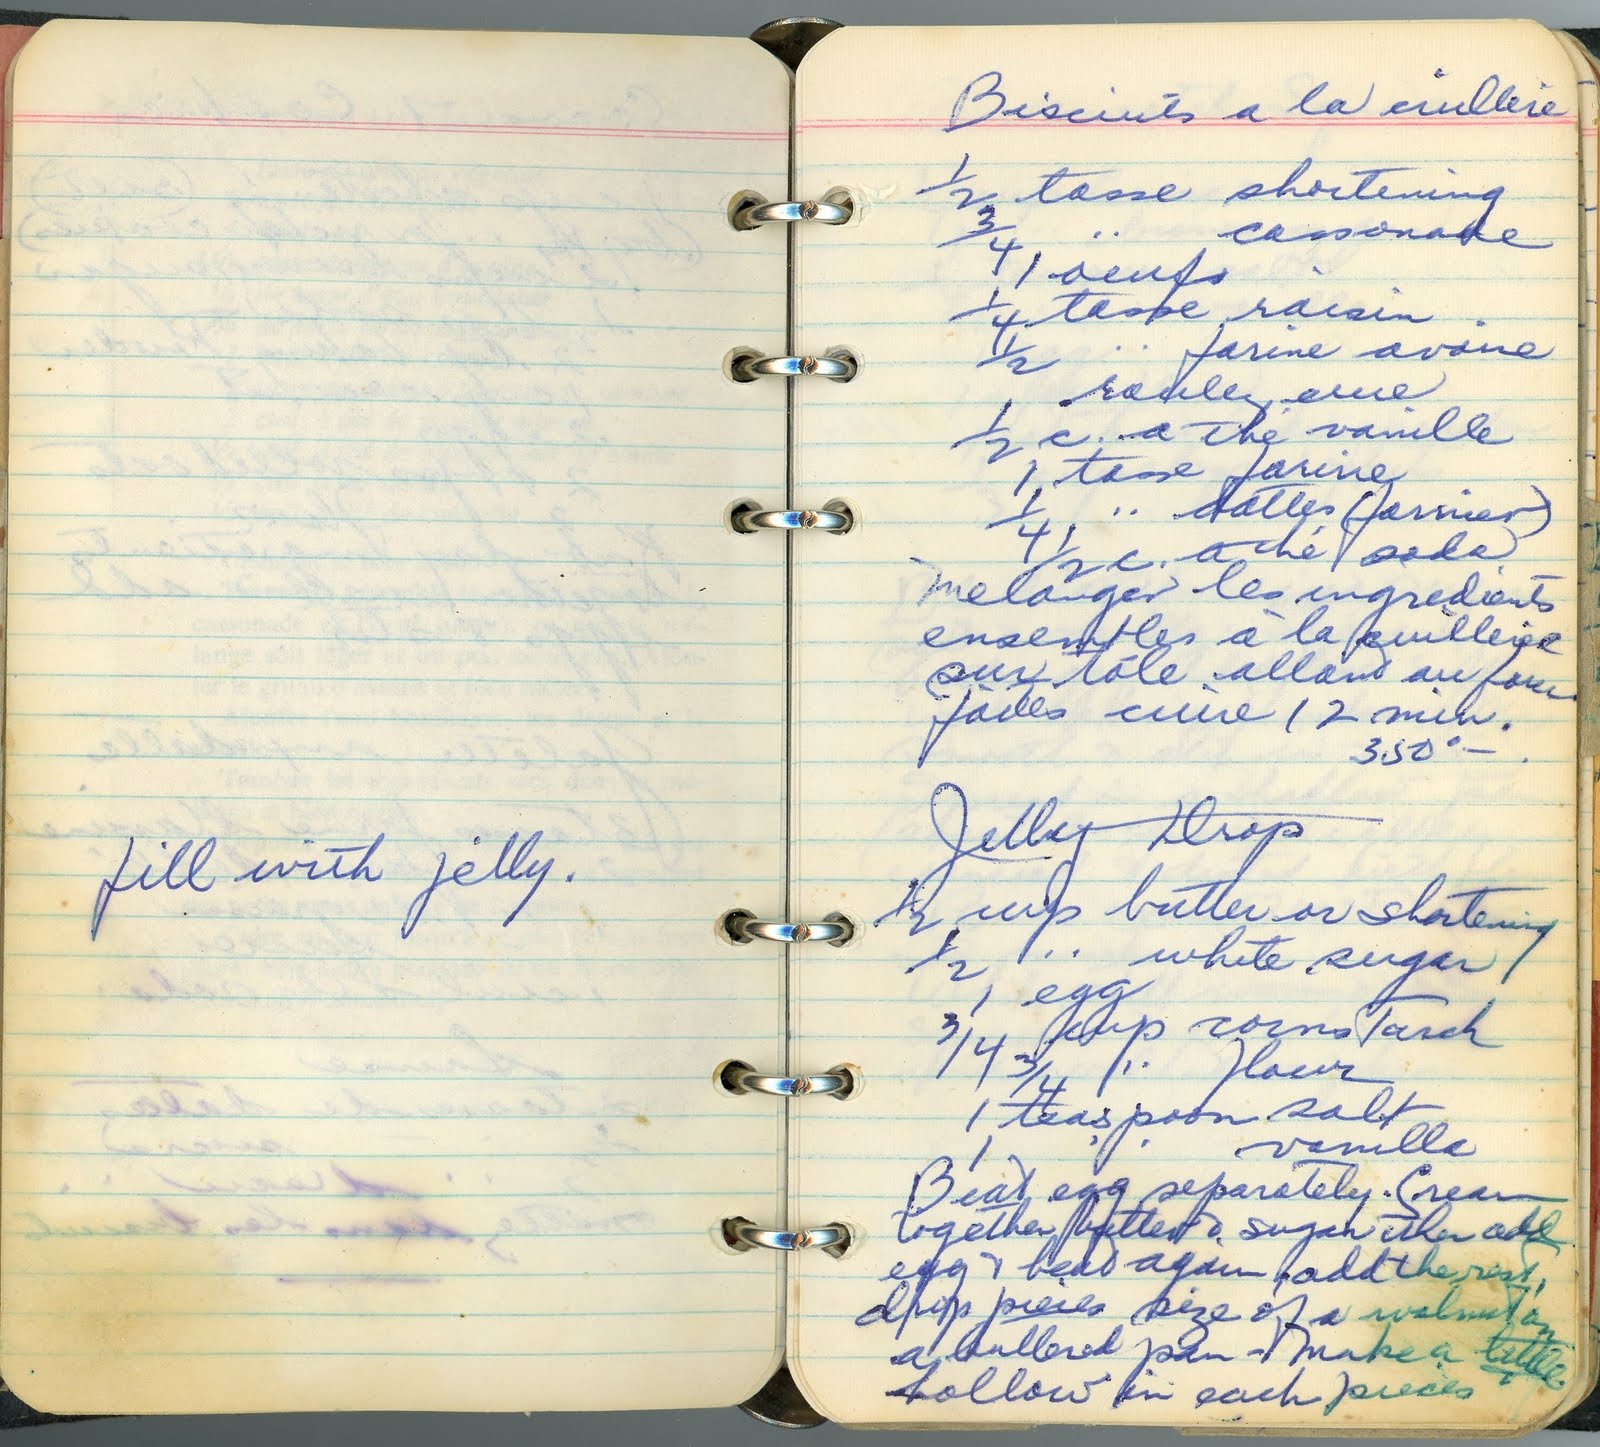 fill with jelly.
Biscuits a la cuillère
1/2 tasse shortening
3/4 " cassonade
1 oeufs
1/4 tasse raisin
1/2 " farine avoine
roulez crue
1/2 c. a thé vanille
1 tasse farine
1/4 " dattes
1/2 c. a thé soda
Melanger les ingredients
ensembles à la cuillière
sur tôle allant au four
faites cuire 12 min.
350°
Jelly Drop
1/2 cup butter or shortening
1/2 " white sugar
1 egg
3/4 cup cornstarch
3/4 " flour
1 teaspoon salt
1 " vanilla
Beat egg separately. Cream
together butter & sugar then add
egg & beat again, add the rest,
drop pieces size of a walnut on
a buttered pan - Make a little
hollow in each pieces